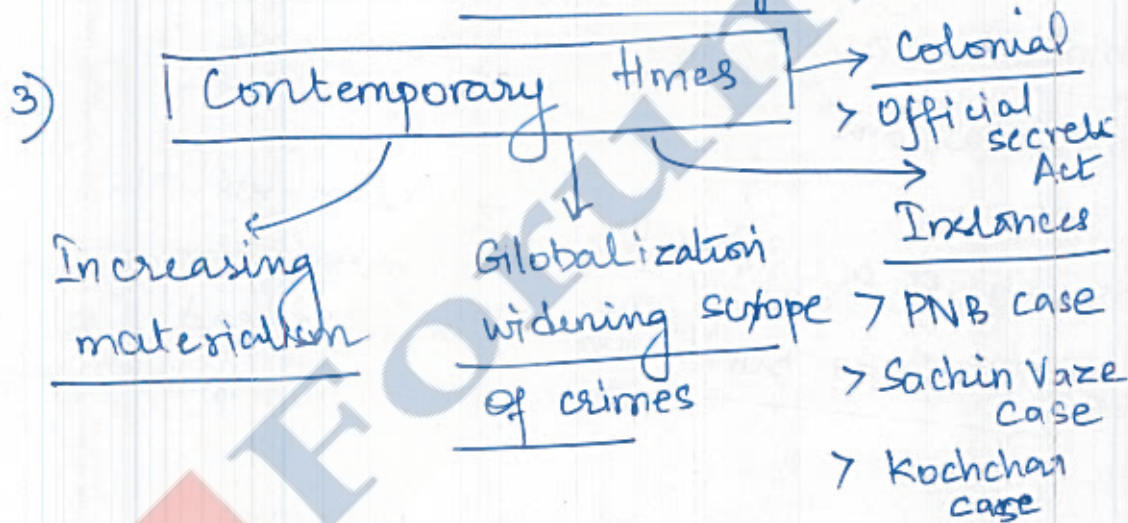 3)
Contemporary times
Colonial
> Official
secrets
Act
Increasing
materialism
Globalization
widening scope
of crimes
Instances
> PNB case
> Sachin Vaze
case
> Kochchar
case
Forum